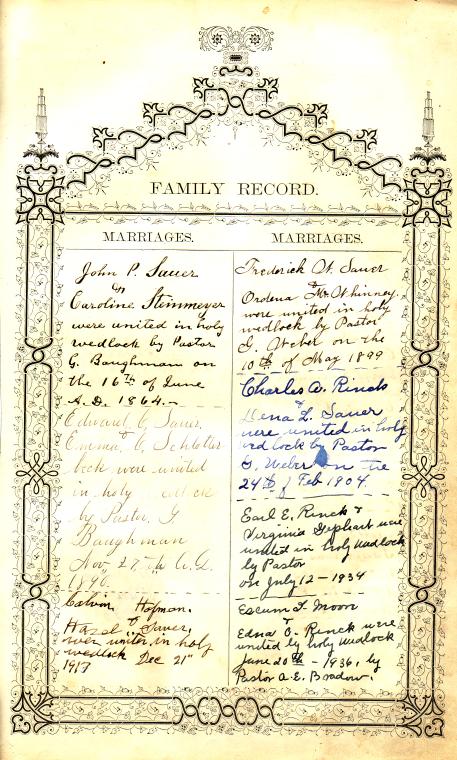 FAMILY RECORD.
MARRIAGES.
John P. Sauer
&
Caroline Stimmeyer
were united in holy
wedlock by Pastor
G. Baughman on
the 16th of June
A.D. 1864.
Edward C. Sauer
&
Emma C. Schlotter
beck were united
in holy
by Pastor G.
Baughman
Nov. 27th A.D.
1890.
Calvin Hofman.
&
Hazel Sauer,
were united in holy
wedlock Dec 21st
1917
MARRIAGES.
Frederick W. Sauer
&
Ordena McWhinney.
were united in holy
wedlock by Pastor
G. Weber on the
10th of May 1899
Charles A. Rinck
&
Lena L. Sauer
were united in holy
wedlock by Pastor
G. Weber on the
24th of Feb 1904.
Earl E. Rinck &
Virginia Gephart were
united in holy wedlock
by Pastor
on July 12 - 1934
Escum F. Moon
&
Edna O. Rinck were
united by holy wedlock
June 20th - 1936, by
Pastor A. E. Bradow.